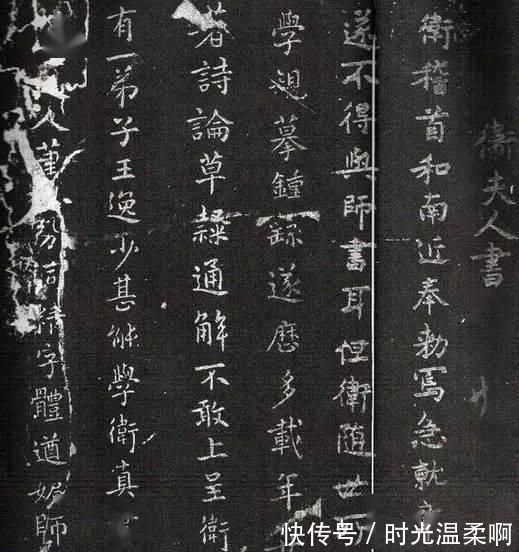 衛夫人書
衛稽首和南近奉勅寫急就
遂不得與師書耳但衛隨世所
學規摹鍾繇遂歷多載年
著詩論草隸通解不敢上呈衛
有一弟子王逸少甚能學衛真
人 勢 字體遒媚師
快传号/时光温柔啊